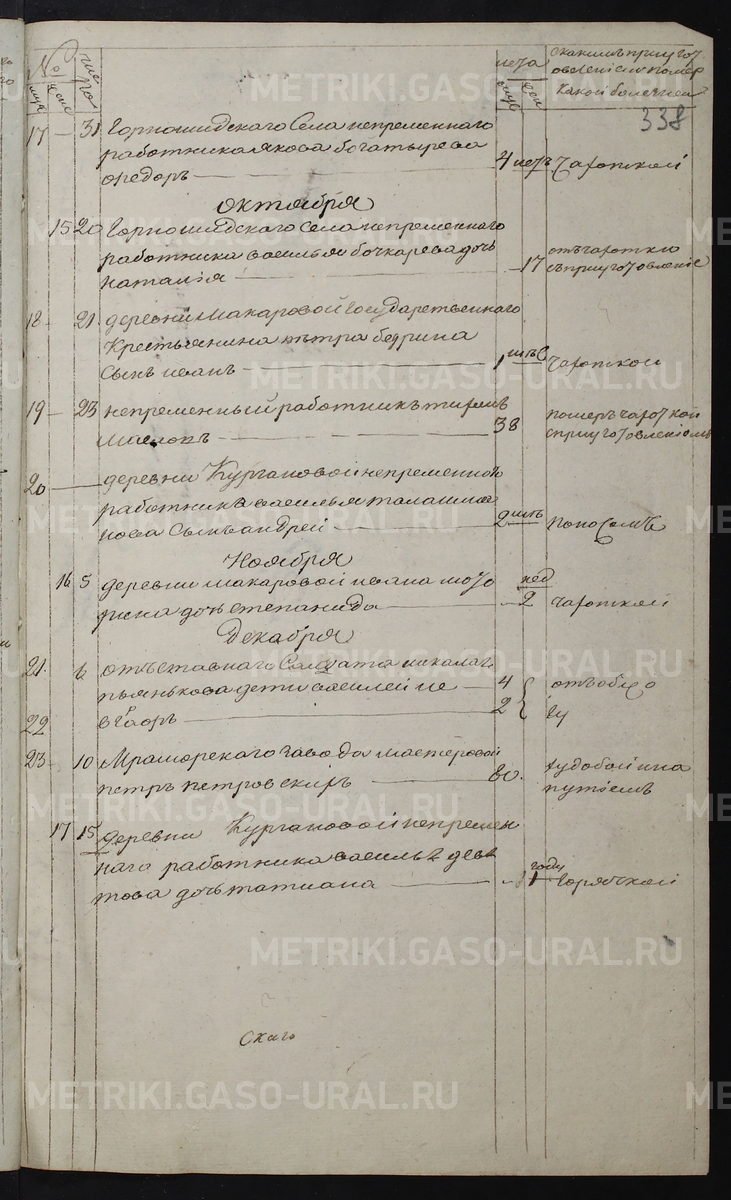 № число лета скакимъ приугот
муж жен муж жен овленiемъ помер
какой болезнеи
338
17 — 31 Горнощидскаго Села непременнаго
работника якова богатырева
Федоръ — 4 летъ Чахоткой
октября
15 20 Горнощидскаго Села непременнаго
работника васильи бочкарева дочь
наталiя — 17 отъ чахотки
съ приуготовленiе
18 - 21 деревни макаровой государственнаго
Крестьянина петра бедрина
Сынъ иванъ — 1 чахоткой
19 — 23 непременный работникъ
38 померъ чахоткой
сприуготовленiемъ
20 — деревни Кургановой непременнаго
работника васильи талашма
нова Сынъ андрей — 2 поносомъ
Ноября
16 5 деревни макаровой ивана
рина дочь степанида — 2 нед чахоткой
Декабря
21. 6 отъставнаго Салдата николая
пьянькова дети василей ие — 4 отъ
22 вгаоръ — 2
23 - 10 Мраморскаго завода мастеровой
петръ петровскихъ — 80.
путiемъ
17 15 деревни Кургановой непремен
наго работника василья девя
това дочь татиана — 1 году горячкой
скаго
METRIKI.GASO-URAL.RU